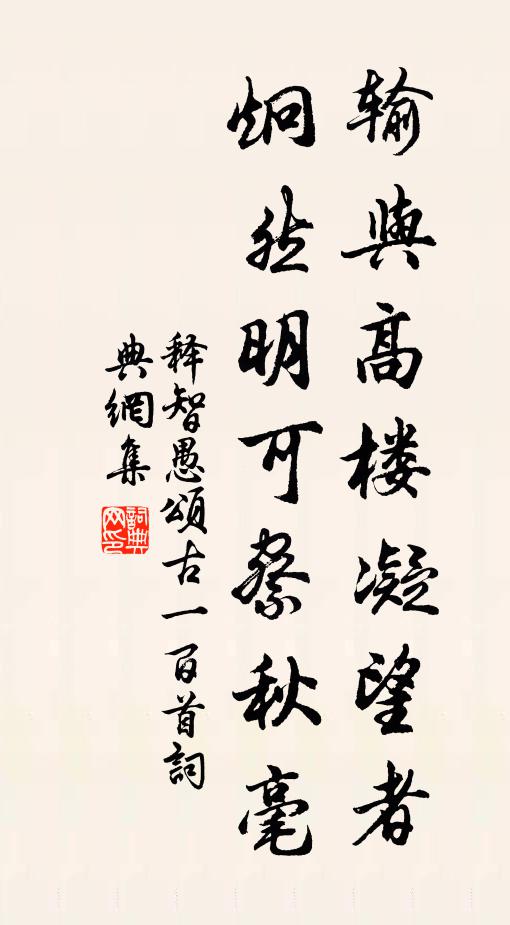 输與高楼凝望者
炯然明可察秋毫
释智愚颂古一百首詞
典網集
詞典
网印